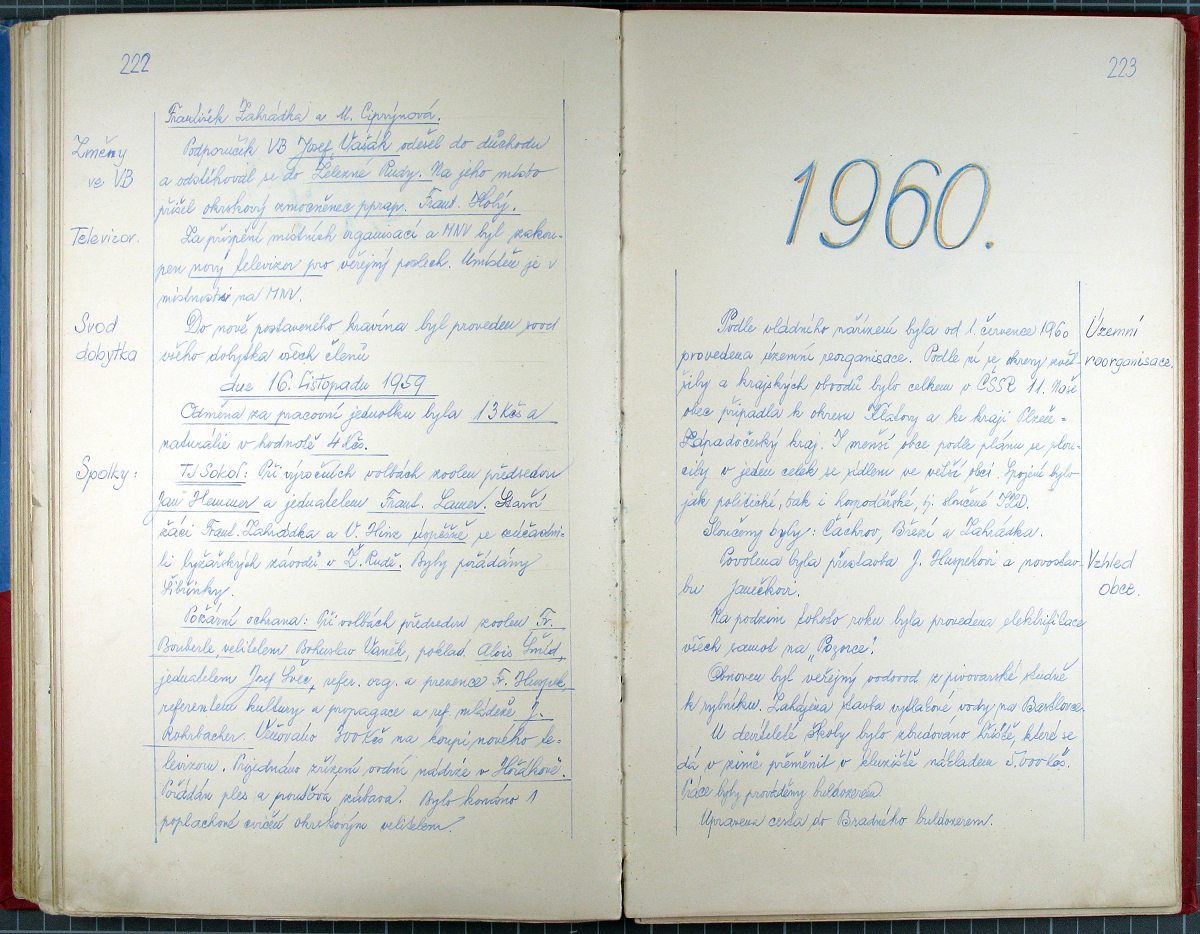 222
František Zahrádka a M. Ciprýnová.
Změny
ve VB
Podporučík VB Josef Vašák odešel do důchodu
a odstěhoval se do Železné Rudy. Na jeho místo
přišel okrskový zmocněnec pprap. Frant. Holý.
Televizor.
Za přispění místních organisací a MNV byl zakou-
pen nový televizor pro veřejný poslech. Umístěn je v
místnosti na MNV.
Svod
dobytka
Do nově postaveného kravína byl proveden svod
všeho dobytka všech členů
dne 16. listopadu 1959
Odměna za pracovní jednotku byla 13 Kčs a
naturálie v hodnotě 4 Kčs.
Spolky:
TJ Sokol: Při výročních volbách zvolen předsedou
Jan Hemmer a jednatelem Frant. Lanzer. Starší
žáci Frant. Zahrádka a V. Hinz úspěšně se zúčastni-
li lyžařských závodů v Ž. Rudě. Byly pořádány
Šibřinky.
Požární ochrana: Při volbách předsedou zvolen Fr.
Bouberle, velitelem Bohuslav Vaněk, poklad. Alois Šmíd,
jednatelem Josef Švec, refer. org. a prevence Fr. Huspek,
referentem kultury a propagace a ref. mládeže J.
Rohrbacher. Věnováno 300 Kčs na koupi nového te-
levizoru. Projednáno zřízení vodní nádrže v Hořákově.
Pořádán ples a pouťová zábava. Bylo konáno 1
poplachové cvičení okrskovým velitelem.
223
1960.
Územní
reorganisace.
Podle vládního nařízení byla od 1. července 1960
provedena územní reorganisace. Podle ní se okresy zvět-
šily a krajských obvodů bylo celkem v ČSSR 11. Naše
obec připadla k okresu Klatovy a ke kraji Plzeň =
Západočeský kraj. I menší obce podle plánu se slou-
čily v jeden celek se sídlem ve větší obci. Spojení bylo
jak politické, tak i hospodářské, tj. sloučené JZD.
Sloučeny byly: Čachrov, Březí a Zahrádka.
Vzhled
obce.
Povolena byla přestavba J. Huspekovi a novostav-
ba Janečkovi.
Na podzim tohoto roku byla provedena elektrifikace
všech samot na „Pozorce".
Obnoven byl veřejný vodovod z pivovarské studně
k rybníku. Zahájena stavba výtlačné vody na
U devítileté školy bylo zbudováno hřiště, které se
dá v zimě přeměnit v kluziště nákladem 5.000 Kčs.
Práce byly prováděny buldozerem.
Upravena cesta do Bradného buldozerem.